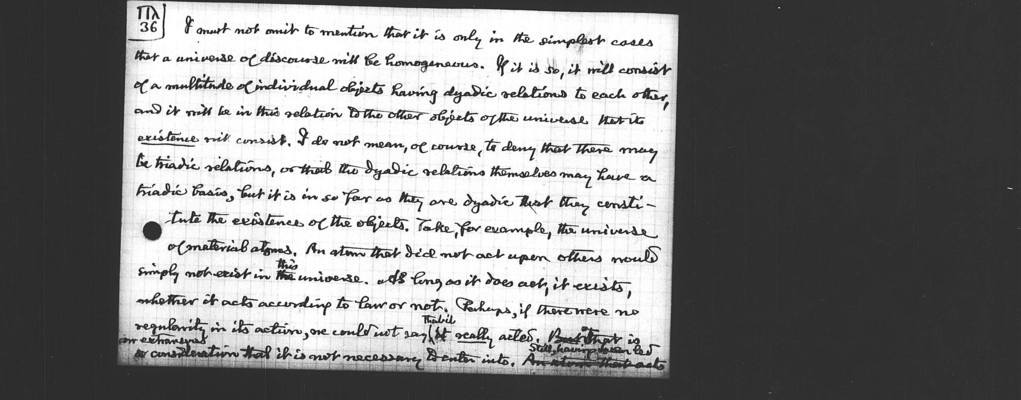 ΠΛ
36
I must not omit to mention that it is only in the simplest cases
that a universe of discourse will be homogeneous. If it is so, it will consist
of a multitude of individual objects having dyadic relations to each other,
and it will be in this relation to the other objects of the universe that its
existence will consist. I do not mean, of course, to deny that there may
be triadic relations, or that the dyadic relations themselves may have a
triadic basis, but it is in so far as they are dyadic that they consti-
tute the existence of the objects. Take, for example, the universe
of material atoms. An atom that did not act upon others would
this
simply not exist in the universe. As long as it does act, it exists,
whether it acts according to law or not. Perhaps, if there were no
that
regularity in its action, we could not say it really acted. But that is
an extraneous Still, having been led
consideration that it is not necessary to enter into. An atom that acts